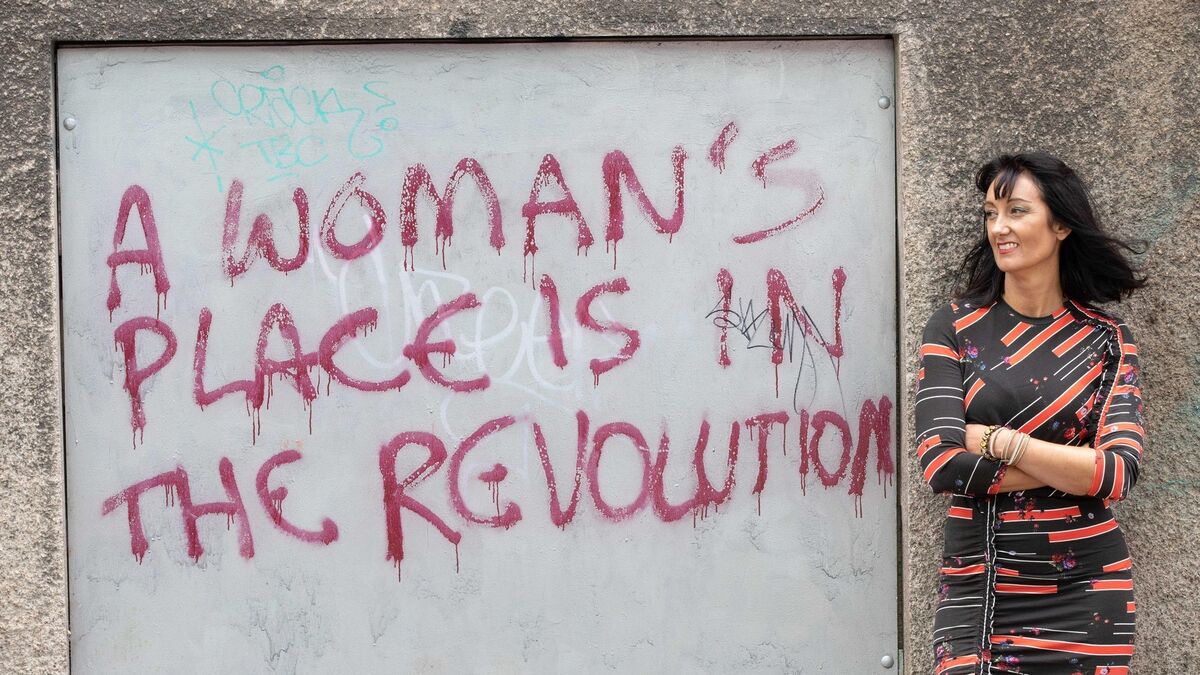 TBC
A WOMAN'S
PLACE IS IN
THE REVOLUTION